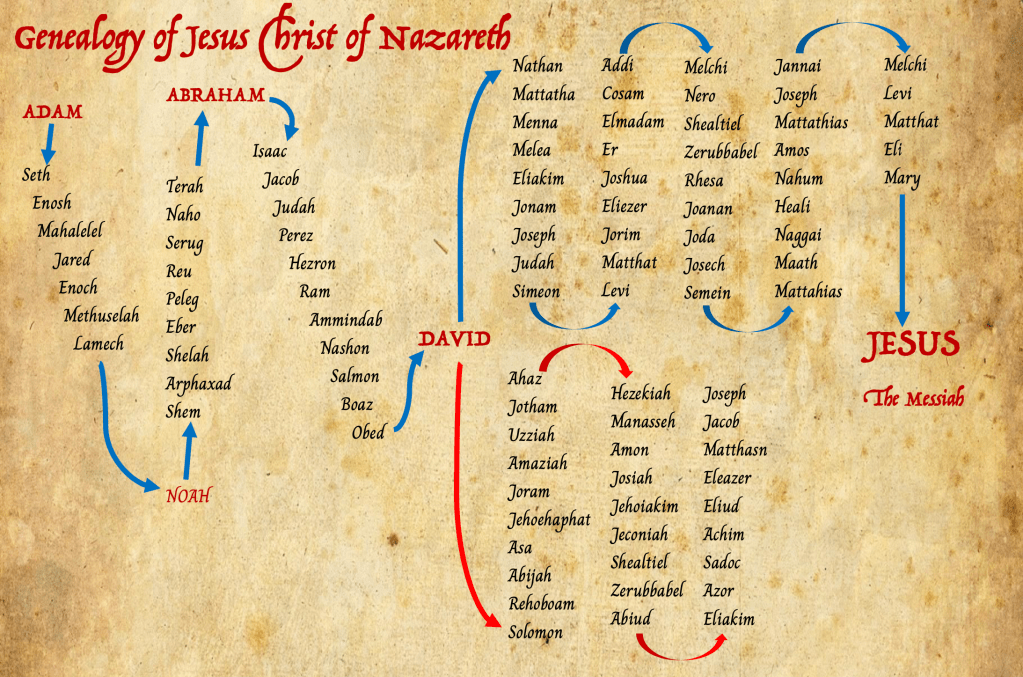 Genealogy of Jesus Christ of Nazareth
ADAM
Seth
Enosh
Mahalelel
Jared
Enoch
Methuselah
Lamech
NOAH
Shem
Arphaxad
Shelah
Eber
Peleg
Reu
Serug
Naho
Terah
ABRAHAM
Isaac
Jacob
Judah
Perez
Hezron
Ram
Ammindab
Nashon
Salmon
Boaz
Obed
DAVID
Nathan
Mattatha
Menna
Melea
Eliakim
Jonam
Joseph
Judah
Simeon
Addi
Cosam
Elmadam
Er
Joshua
Eliezer
Jorim
Matthat
Levi
Melchi
Nero
Shealtiel
Zerubbabel
Rhesa
Joanan
Joda
Josech
Semein
Jannai
Joseph
Mattathias
Amos
Nahum
Heali
Naggai
Maath
Mattahias
Melchi
Levi
Matthat
Eli
Mary
JESUS
The Messiah
Ahaz
Jotham
Uzziah
Amaziah
Joram
Jehoehaphat
Asa
Abijah
Rehoboam
Solomon
Hezekiah
Manasseh
Amon
Josiah
Jehoiakim
Jeconiah
Shealtiel
Zerubbabel
Abiud
Joseph
Jacob
Matthasn
Eleazer
Eliud
Achim
Sadoc
Azor
Eliakim